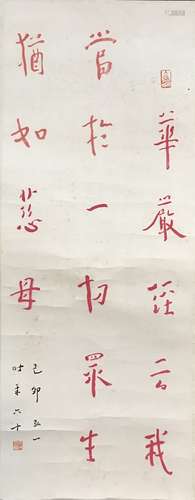 華嚴經云我
當於一切眾生
猶如慈母
己卯弘一
時年六十